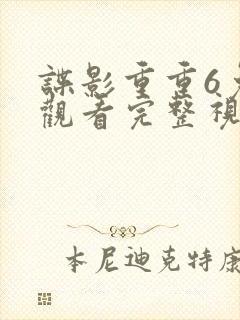 諜影重重6
觀看完整視
本尼迪克特康